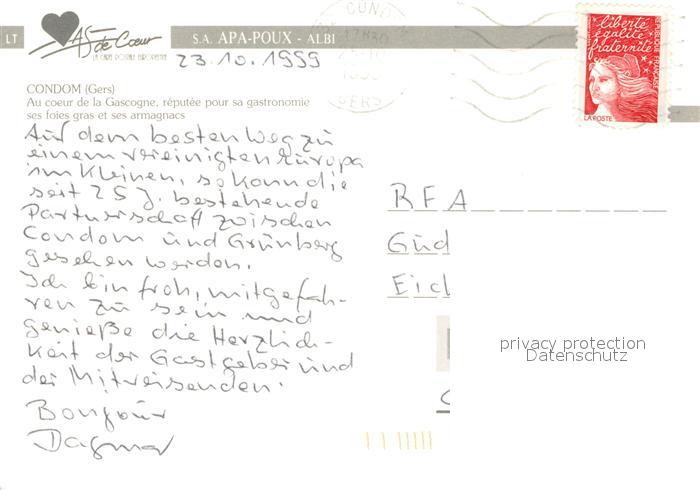 LT
As de Coeur
LA CARTE POSTALE EUROPEENNE
S.A. APA-POUX - ALBI
23.10.1999
CONDOM (Gers)
Au coeur de la Gascogne, réputée pour sa gastronomie
ses foies gras et ses armagnacs
Auf dem besten Weg zu
einem vereinigten Europa
im Kleinen, so kann die
seit 25 J. bestehende
Partnerschaft zwischen
Condom und Grünberg
gesehen werden.
Ich bin froh, mitgefah-
ren zu sein und
genieße die Herzlich-
keit der Gastgeber und
der Mitreisenden.
Bonjour
Dagmar
CONDOM
17H30
GERS
liberté
égalité
fraternité
RÉPUBLIQUE FRANÇAISE
LA POSTE
RFA
Gud
Eich
privacy protection
Datenschutz